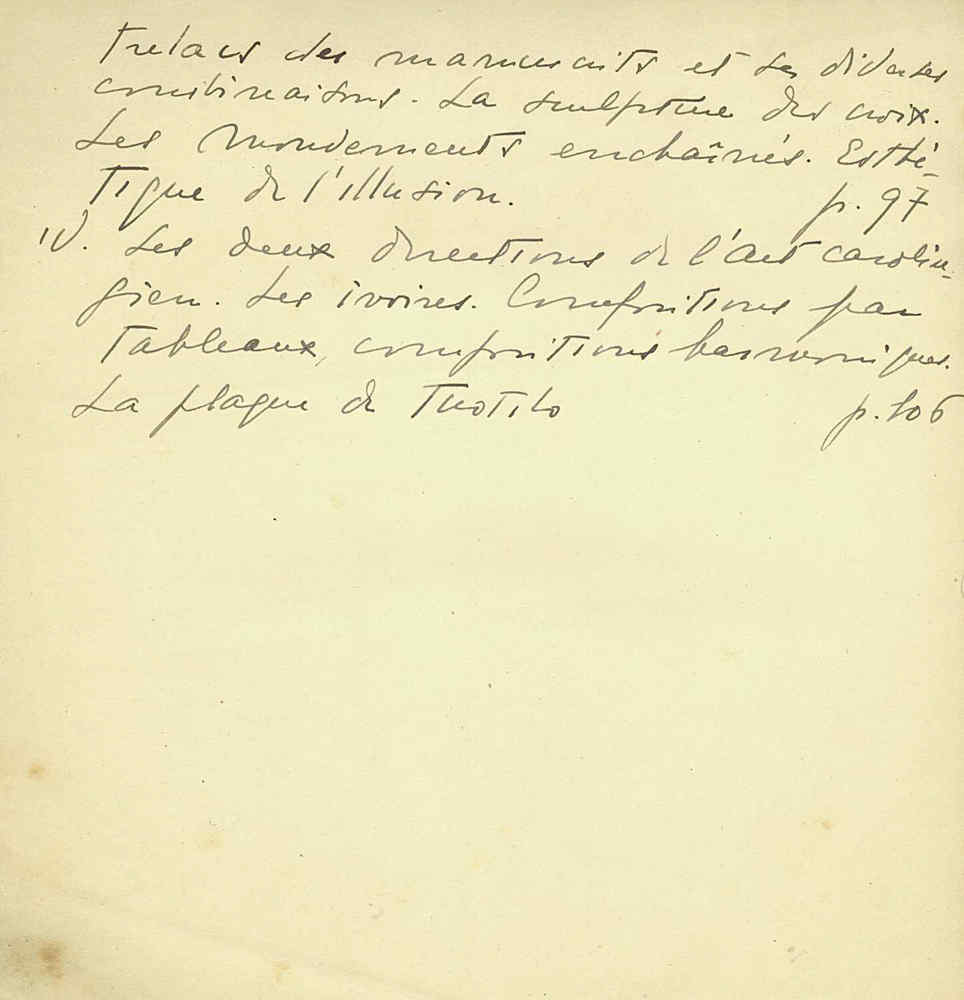 trelacs des manuscrits et ses diverses
combinaisons. La sculpture des croix.
Les mouvements enchaînés. Esthé-
tique de l'illusion. p. 97
IV. Les deux directions de l'art carolin-
gien. Les ivoires. Compositions par
tableaux, compositions harmoniques.
La plaque de Tuotilo p. 106